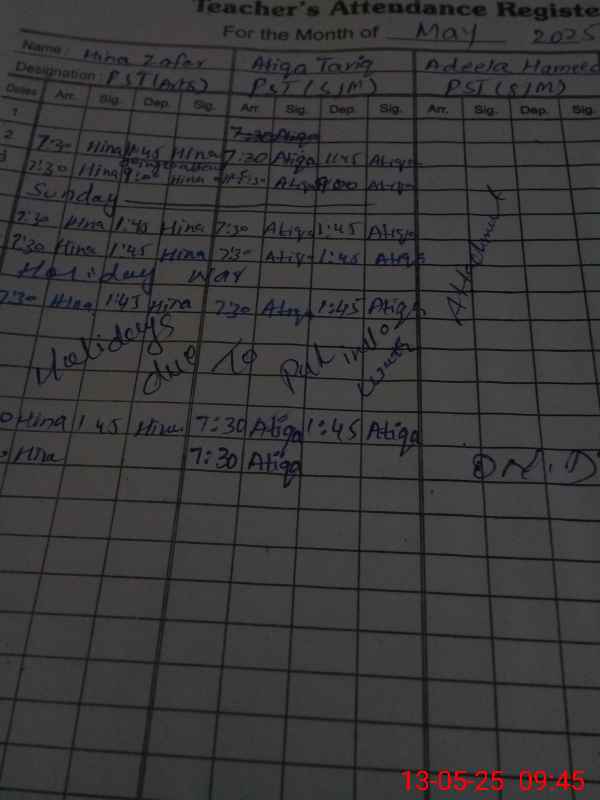 Teacher's Attendance Registe
For the Month of May 2025
Name: Hina Zafar Atiqa Tariq Adeela Hameed
Designation: PST(Arts) PST(S/M) PST(S/M)
Dates Arr. Sig. Dep. Sig. Arr. Sig. Dep. Sig. Arr. Sig. Dep. Sig.
1
7:30 Atiqa
2 7:30 Hina 1:45 Hina 7:30 Atiqa 1:45 Atiqa
3 7:30 Hina Hina Atiqa Atiqa
Sunday
7:30 Hina 1:45 Hina 7:30 Atiqa 1:45 Atiqa
7:30 Hina 1:45 Hina 7:30 Atiqa 1:45 Atiqa
Holiday war
7:30 Hina 1:45 Hina 7:30 Atiqa 1:45 Atiqa
Attachment
Holidays due To Pak indo
Hina 1 45 Hina 7:30 Atiqa 1:45 Atiqa
Hina 7:30 Atiqa
13-05-25 09:45